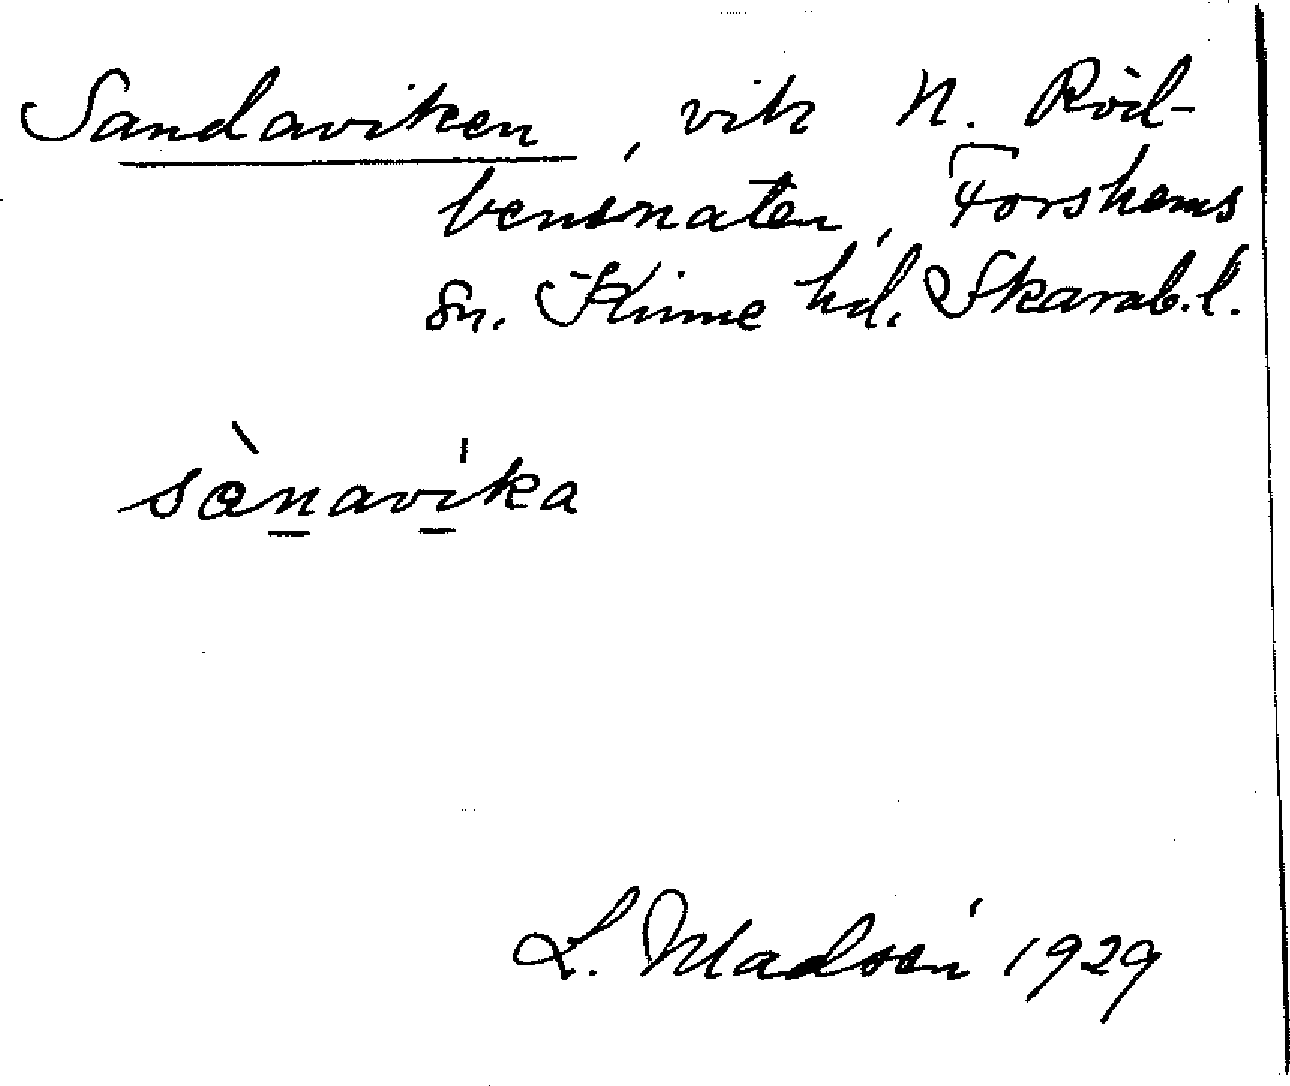 Sandaviken, vik N. Röd-
bensnaten, Forshems
sn. Kinne hd. Skarab.l.
sànavíka
L. Madsén 1929